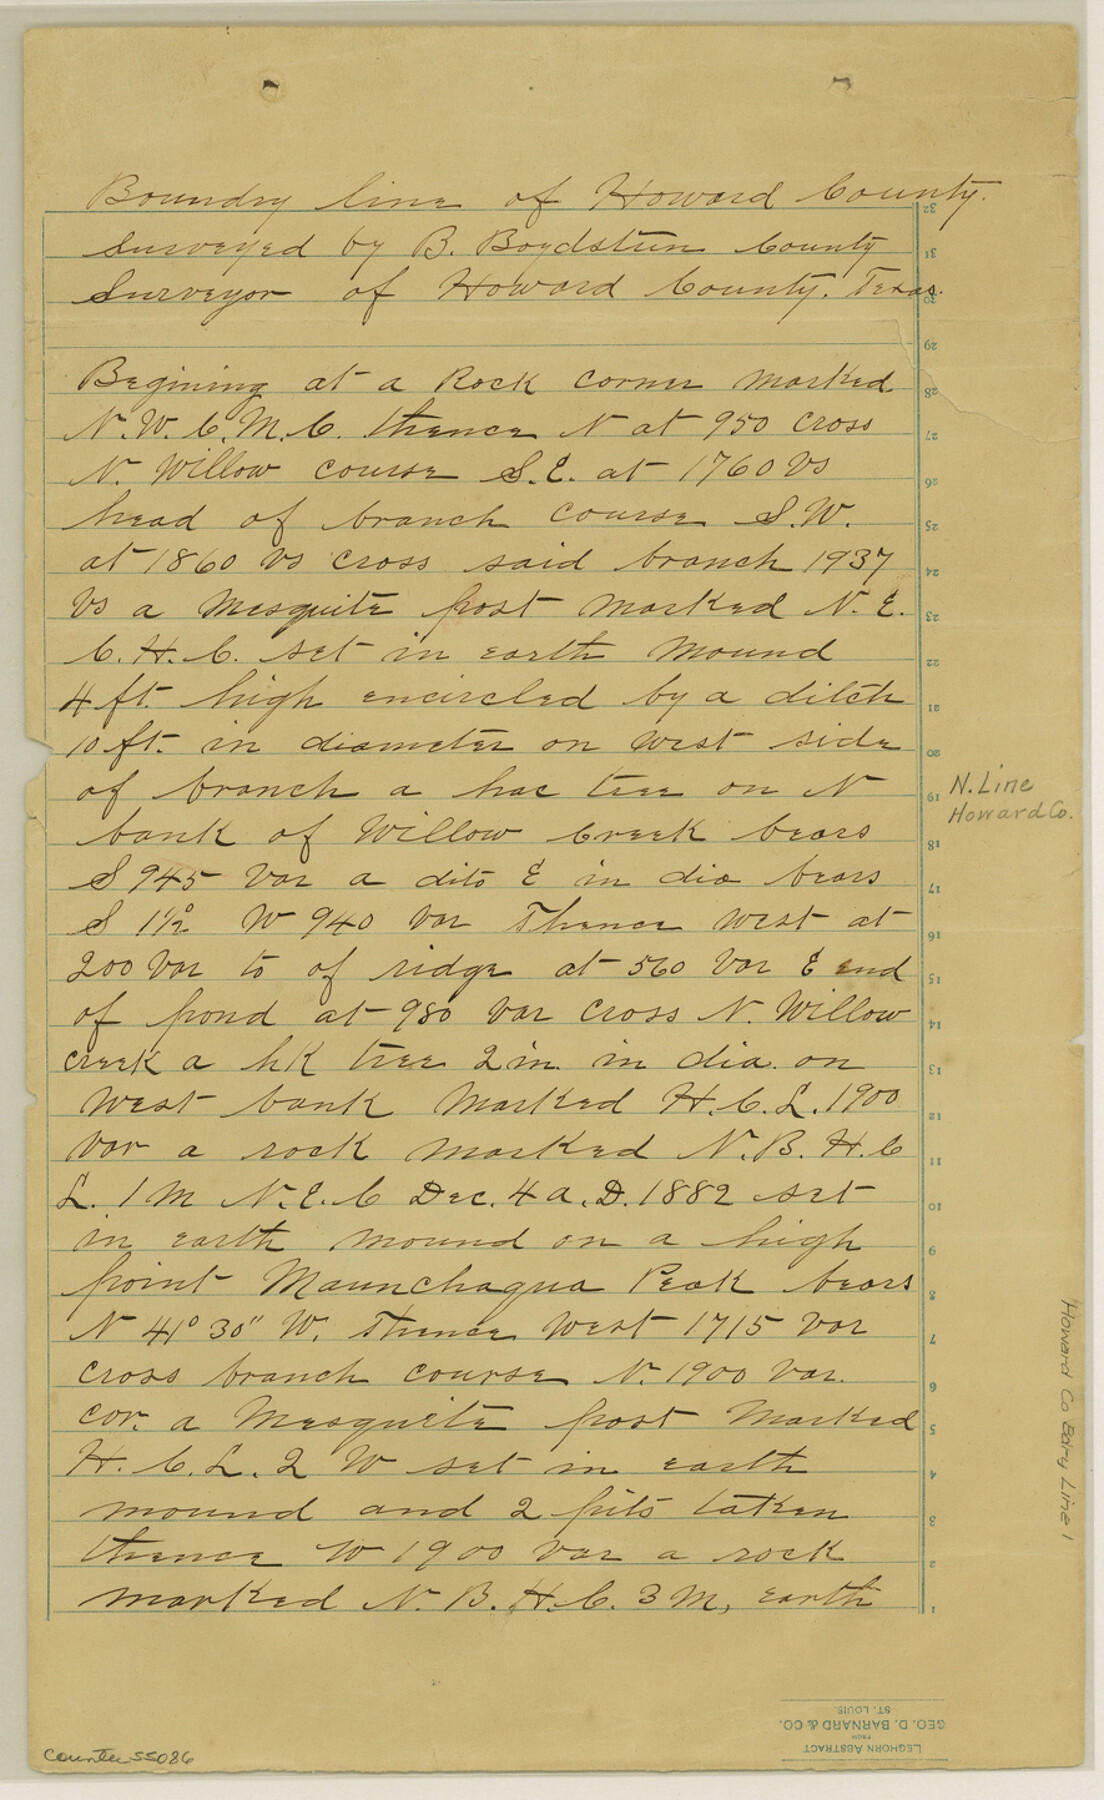 Boundry line of Howard County.
Surveyed by B. Boydstun County
Surveyor of Howard County. Texas.
Begining at a Rock corner marked
N.W.C.M.C. thence N at 950 cross
N. Willow course S.E. at 1760 vs
head of branch course S.W.
at 1860 vs cross said branch 1937
vs a Mesquite post marked N.E.
C.H.C. set in earth mound
4 ft. high encircled by a ditch
10 ft. in diameter on west side
of branch a hac tree on N
bank of Willow Creek bears
S 945 var a dito E in dia bears
S 1½° W 940 var Thence west at
200 var to of ridge at 560 var E end
of pond at 980 var cross N. Willow
creek a hk tree 2 in. in dia. on
West bank Marked H.C.L. 1900
var a rock marked N.B.H.C
L. 1 M N.E.C Dec. 4 A.D. 1882 set
in earth mound on a high
point Maunchaqua Peak bears
N 41° 30" W. Thence West 1715 var
cross branch course N. 1900 var.
cor. a Mesquite post Marked
H.C.L. 2 W set in earth
mound and 2 pits taken
thence W 1900 var a rock
marked N.B.H.C. 3 M, earth
32
31
30
29
28
27
26
25
24
23
22
21
20
19
18
17
16
15
14
13
12
11
10
9
8
7
6
5
4
3
2
1
N. Line
Howard Co.
Howard Co Bdry Line 1
LEGHORN ABSTRACT
FROM
GEO. D. BARNARD & CO.
ST. LOUIS.
counter 55086